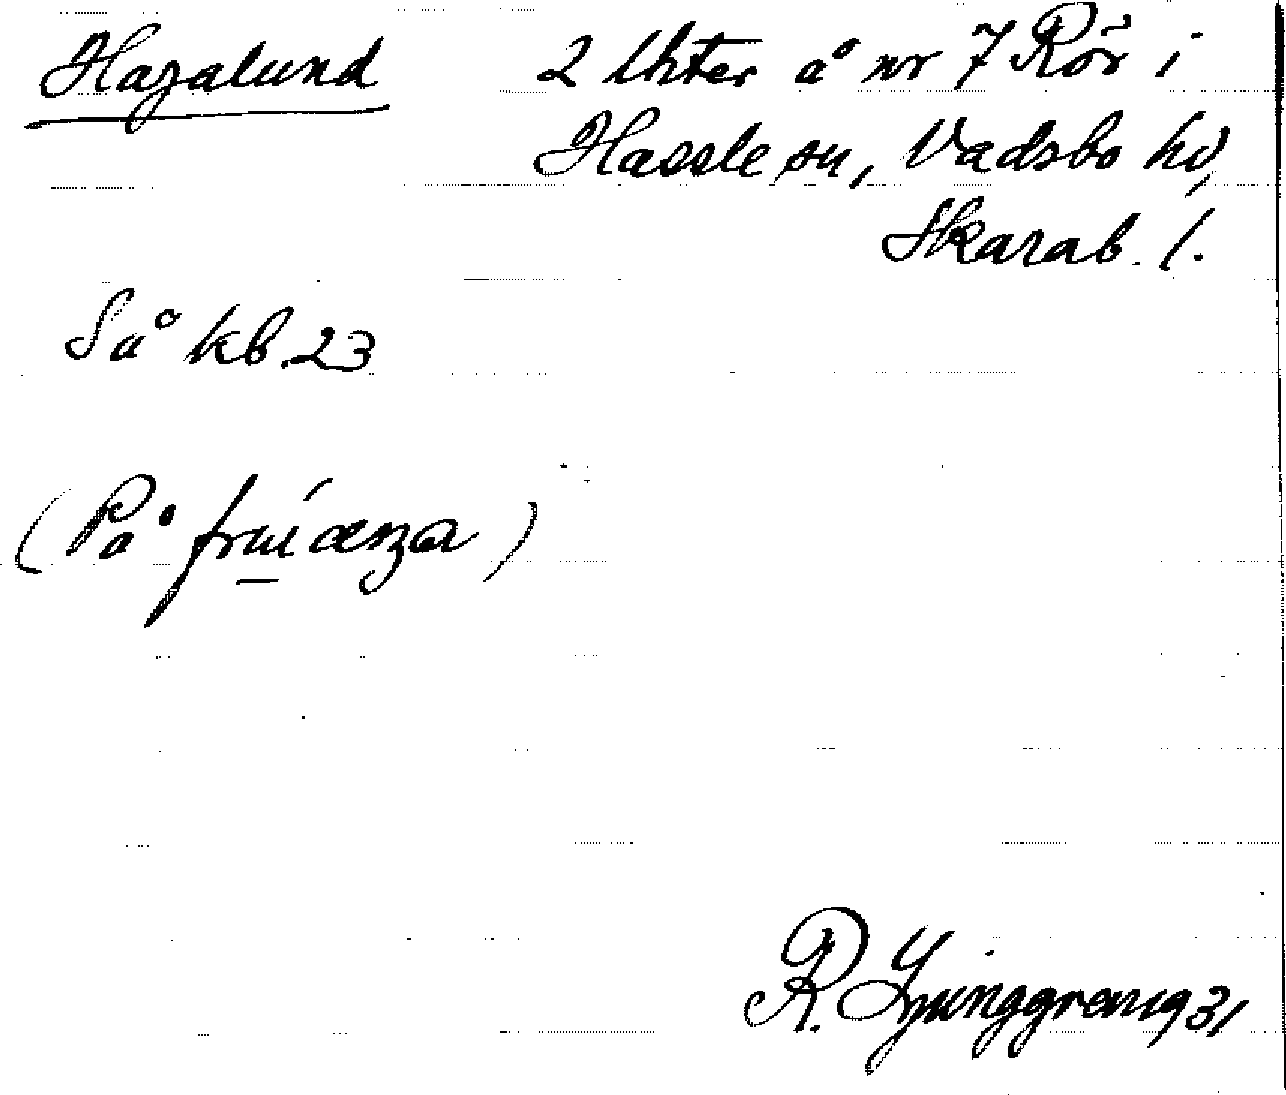 Hagalund 2 lhter å nr 7 Rör i
Hassle sn, Vadsbo hd,
Skarab. l.
Så kb. 23
(På
R. Ljunggren 1931